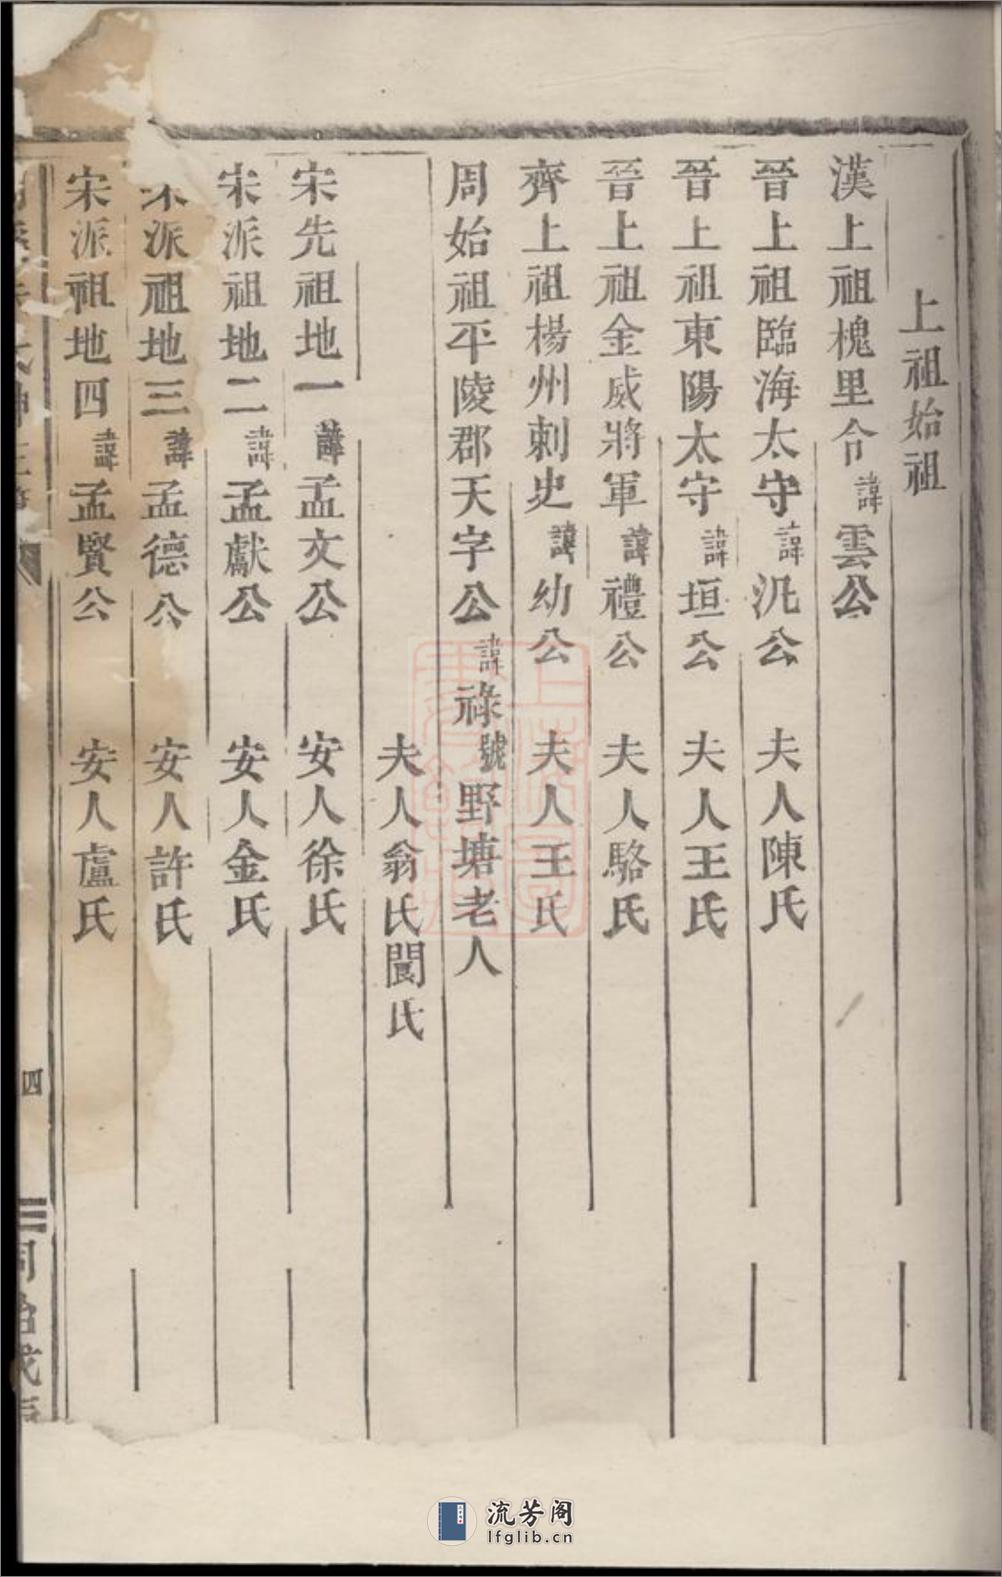 上祖始祖
漢上祖槐里令諱雲公
晉上祖臨海太守諱汎公 夫人陳氏
晉上祖東陽太守諱垣公 夫人王氏
晉上祖金威將軍諱禮公 夫人駱氏
齊上祖楊州刺史諱幼公 夫人王氏
周始祖平陵郡天字公諱祿號野塘老人
夫人翁氏閭氏
宋先祖地一諱孟文公 安人徐氏
宋派祖地二諱孟獻公 安人金氏
宋派祖地三諱孟德公 安人許氏
宋派祖地四諱孟賢公 安人盧氏
四
流芳阁
lfglib.cn